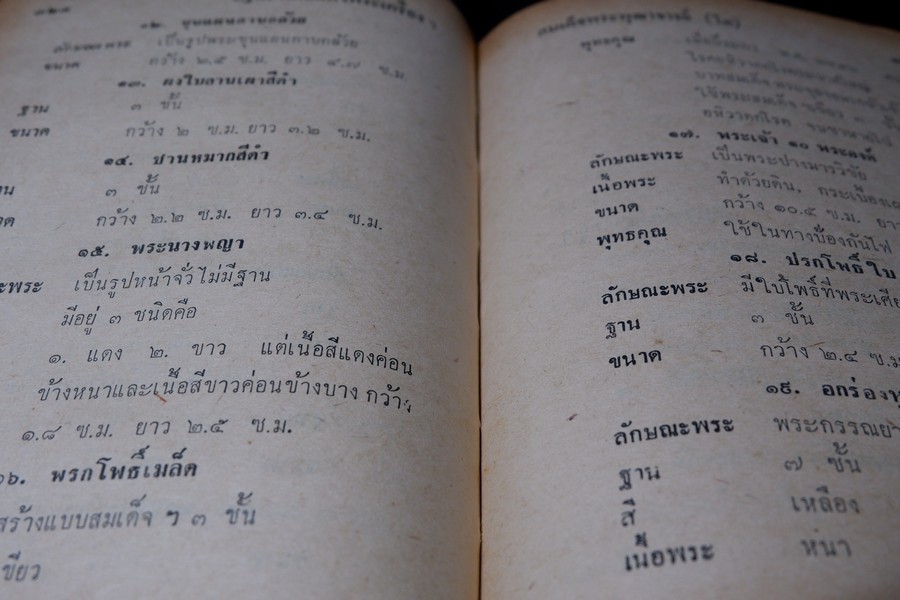 ๑๒. ขุนแผนกาบกล้วย
เป็นรูปพระขุนแผนกาบกล้วย
ขนาด กว้าง ๒.๕ ซ.ม. ยาว ๔.๗ ซ.ม.
๑๓. ผงใบลานเผาสีดำ
ฐาน ๓ ชั้น
ขนาด กว้าง ๒ ซ.ม. ยาว ๓.๒ ซ.ม.
๑๔. ชานหมากสีดำ
๓ ชั้น
กว้าง ๒.๒ ซ.ม. ยาว ๓.๔ ซ.ม.
๑๕. พระนางพญา
พระ เป็นรูปหน้าจั่วไม่มีฐาน
มีอยู่ ๓ ชนิดคือ
๑. แดง ๒. ขาว แต่เนื้อสีแดงค่อน
ข้างหนาและเนื้อสีขาวค่อนข้างบาง กว้าง
๑.๘ ซ.ม. ยาว ๒.๕ ซ.ม.
๑๖. พรกโพธิ์เมล็ด
สร้างแบบสมเด็จ ๆ ๓ ชั้น
เขียว
สมเด็จพระพุฒาจารย์ (โต)
พุทธคุณ
๑๗. พระเจ้า ๑๐ พระองค์
ลักษณะพระ เป็นพระปางมารวิชัย
เนื้อพระ ทำด้วยดิน, กระเบื้อง
ขนาด กว้าง ๑๐.๕ ซ.ม. ยาว
พุทธคุณ ใช้ในทางป้องกันไฟ
๑๘. ปรกโพธิ์ใบ
ลักษณะพระ มีใบโพธิ์ที่พระเศีย
ฐาน ๓ ชั้น
ขนาด กว้าง ๒.๔ ซ.ม.
๑๙. อกร่อง
ลักษณะพระ พระกรรณย
ฐาน ๗ ชั้น
สี เหลือง
เนื้อพระ หนา